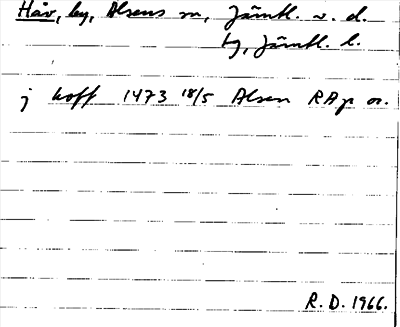 Håv, by, Alsens sn, Jämtl. v. d.
tg, Jämtl. l.
j hoff 1473 18/5 Alsen RAp or.
R. D. 1966.